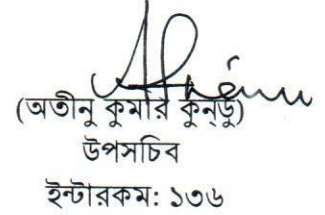 (অতীনু কুমার কুন্ডু)
উপসচিব
ইন্টারকম: ১৩৬